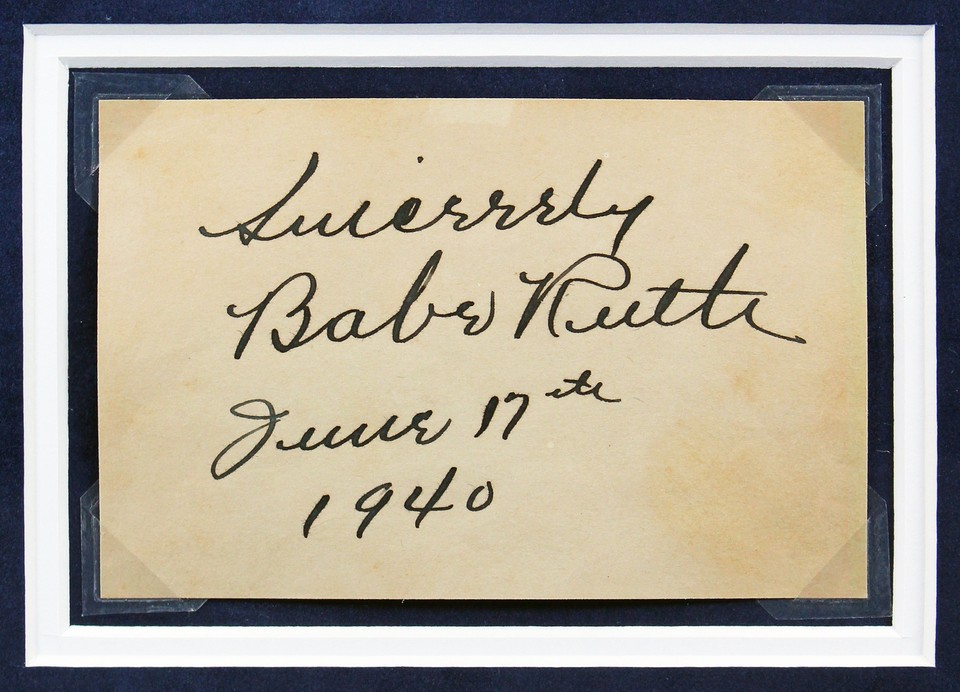 Sincerely
Babe Ruth
June 17th
1940